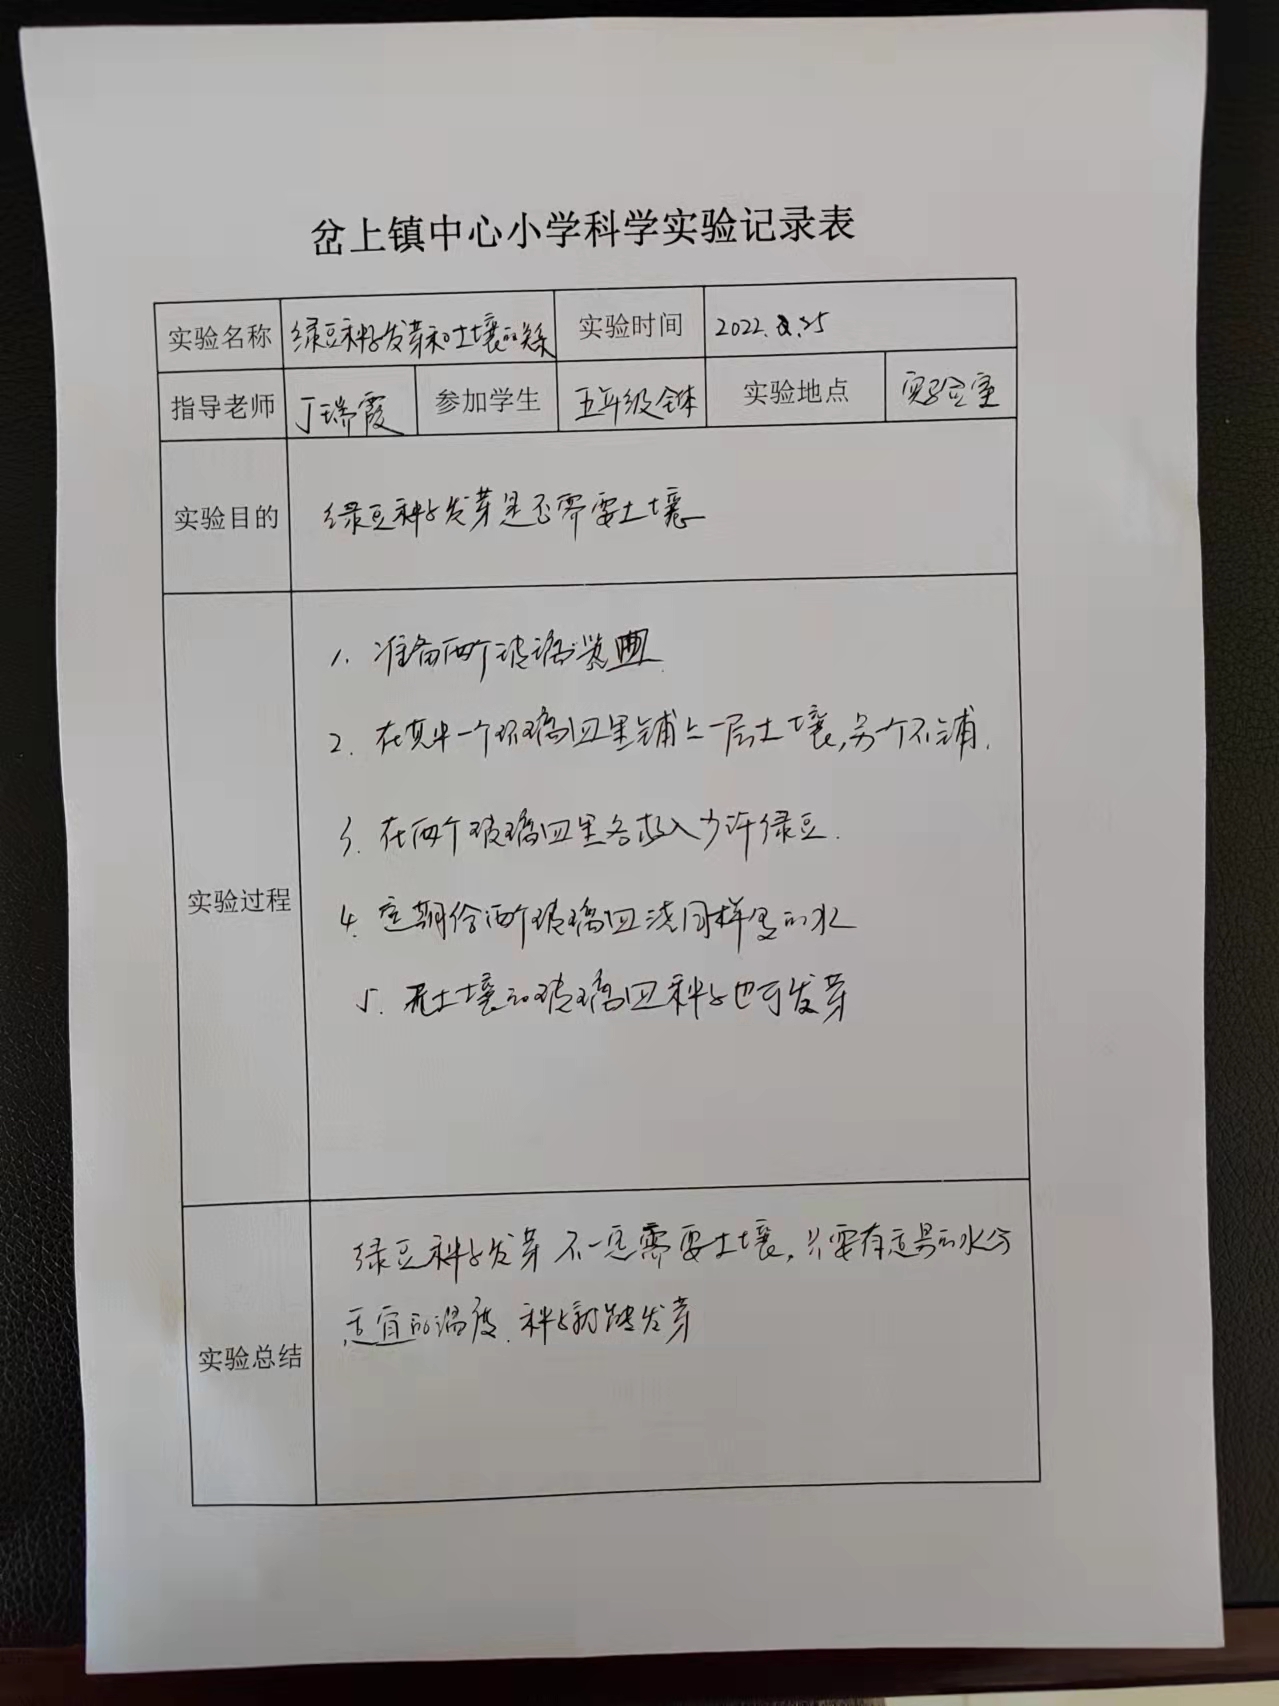 岔上镇中心小学科学实验记录表
实验名称 绿豆种子发芽和土壤的关系 实验时间 2022.
指导老师 丁瑞霞 参加学生 五年级全体 实验地点 实验室
实验目的 绿豆种子发芽是否需要土壤
实验过程
1. 准备两个玻璃器皿
2. 在其中一个玻璃皿里铺上一层土壤,另一个不铺.
3. 在两个玻璃皿里各放入少许绿豆.
4. 定期给两个玻璃皿浇同样量的水
5. 无土壤的玻璃皿种子也可发芽
实验总结
绿豆种子发芽不一定需要土壤,只要有适量的水分
适宜的温度.种子就能发芽